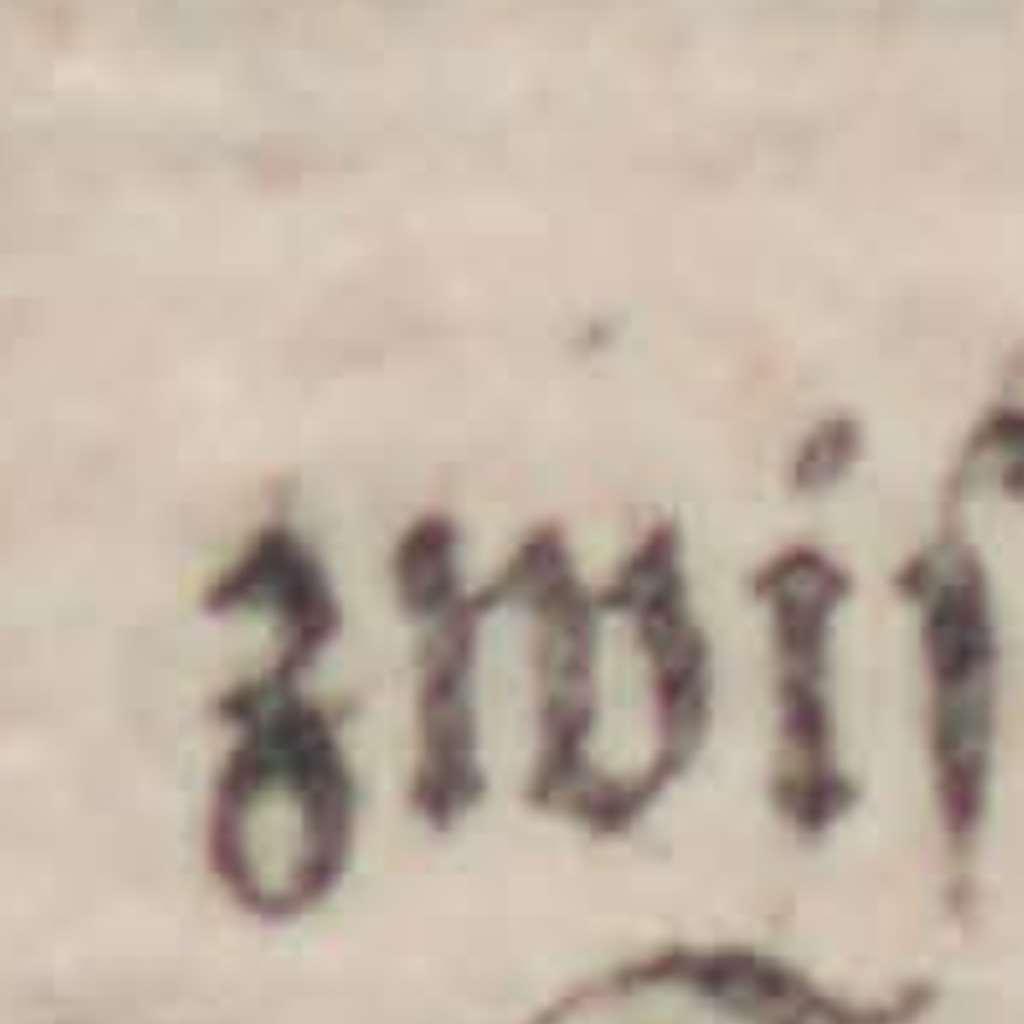 zwiſ